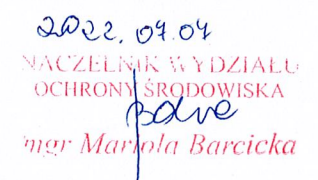 2022.04.04
NACZELNIK WYDZIAŁU
OCHRONY ŚRODOWISKA
mgr Mariola Barcicka